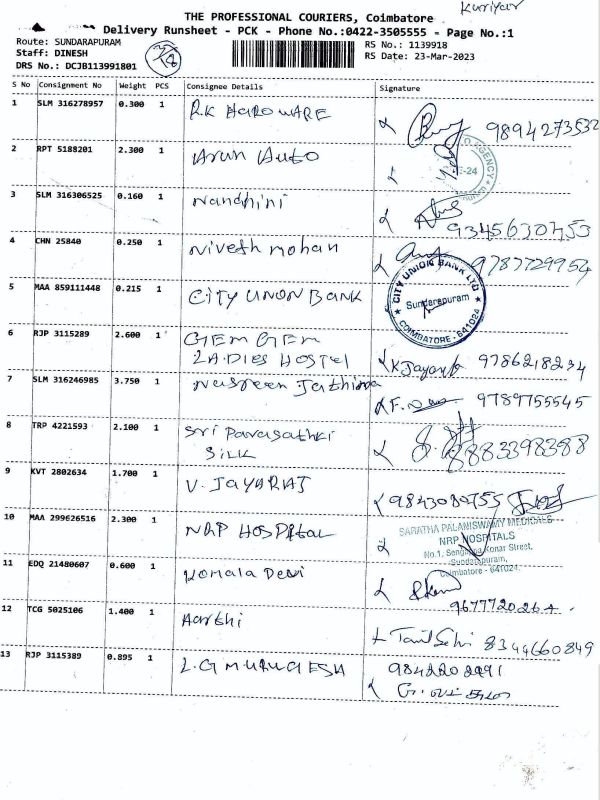 Kuriyar
THE PROFESSIONAL COURIERS, Coimbatore
Delivery Runsheet - PCK - Phone No.:0422-3505555 - Page No.:1
Route: SUNDARAPURAM
RS No.: 1139918
Staff: DINESH
RS Date: 23-Mar-2023
DRS No.: DCJB113991801
S No Consignment No Weight PCS Consignee Details Signature
1 SLM 316278957 0.300 1 R.K HARDWARE 9894273532
2 RPT 5188201 2.300 1 Arun Auto
AGENCY
3 SLM 316306525 0.160 1 Nandhini 9345630753
4 CHN 25840 0.250 1 Nivesh mohan 9787729954
5 MAA 859111448 0.215 1 CITY UNION BANK
CITY UNION BANK LTD
Sundarapuram
COIMBATORE - 641024
6 RJP 3115289 2.600 1 GEM GEM
LADIES HOSTEL K Jayanth 9786218234
7 SLM 316246985 3.750 1 Nasreen Fathima 9789755545
8 TRP 4221593 2.100 1 Sri Parasathki
SILK 8883398388
9 KVT 2802634 1.700 1 V. JAYARAJ 9843089755
10 MAA 299626516 2.300 1 NRP HOSPITAL
SARATHA PALANISWAMY MEDICALS
NRP HOSPITALS
No.1, Sengappa Konar Street,
Sundarapuram,
Coimbatore - 641024.
11 EDQ 21480607 0.600 1 Komala Devi
12 TCG 5025106 1.400 1 Aarthi Tamil Selvi 8344660849
13 RJP 3115389 0.895 1 L.G MURUGESH 9842202991